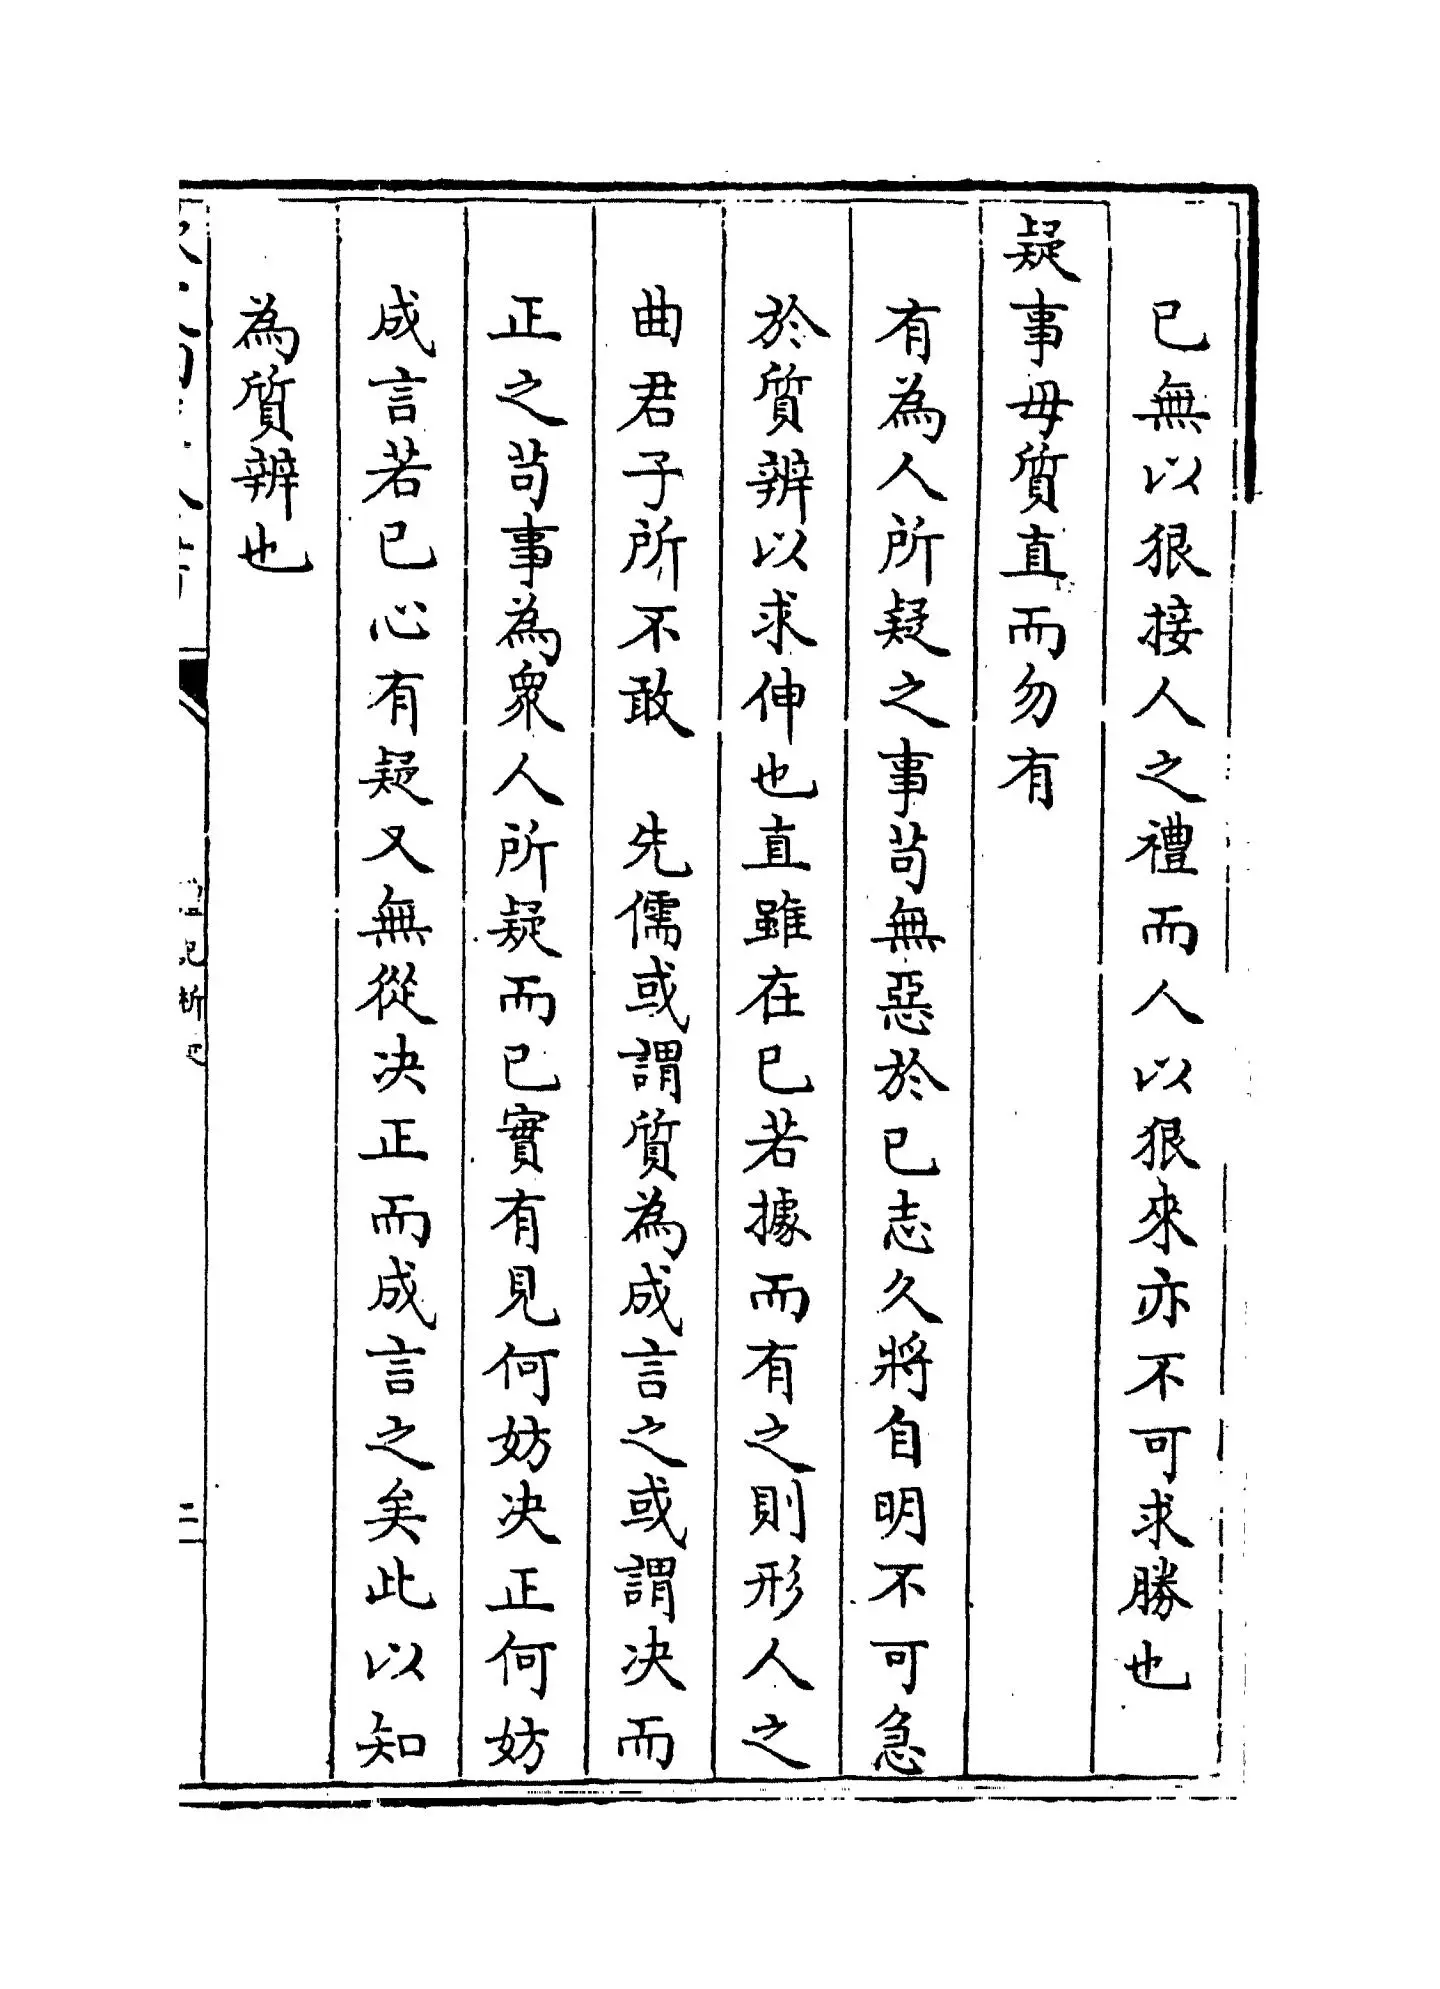 已無以狠接人之禮而人以狠來亦不可求勝也
疑事毋質直而勿有
有為人所疑之事茍無惡於已志久將自明不可急
於質辨以求伸也直雖在已若據而有之則形人之
曲君子所不敢　先儒或謂質為成言之或謂决而
正之茍事為衆人所疑而已實有見何妨决正何妨
成言若已心有疑又無從决正而成言之矣此以知
為質辨也
二